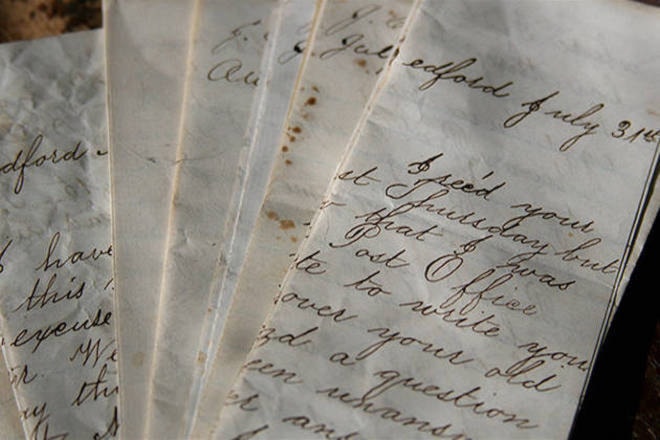 dford
I have
this
excuse
r. We
ay thi
J.
Au
J.
J. Jul
edford July 31st
I rec'd your
st Thursday but
that I was
Post Office
te to write you
over your old
d a question
een unansw
er an